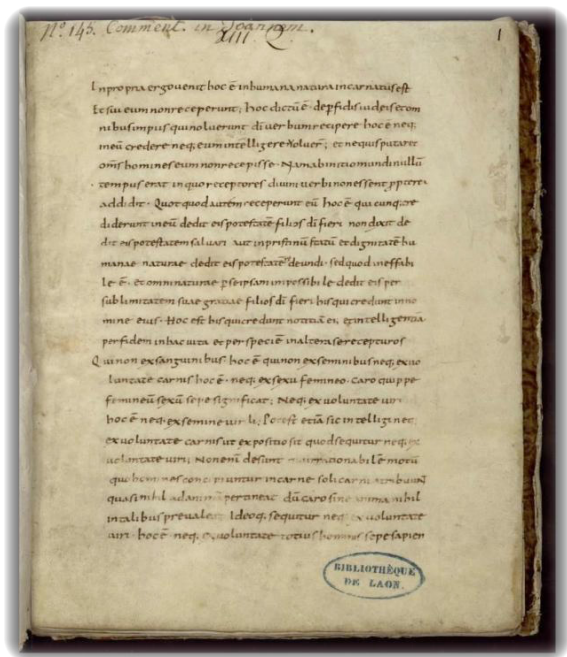 Nº 145. Comment. in Joannem.
XIII
1
Inpropria ergo uenit hoc ē inhumana natura incarnatus est
Et sui eum nonreceperunt; hoc dictū ē de pfidis iudeis etom
nibus impiis quinoluerunt dī uerbum recipere hoc ē neq;
ineū credere neq; eum intelligere uoluer̄; et nequis putaret
om̄s homines eum nonrecepisse. Nam abinitio mundi nullū
tempus erat inquo receptores diuini uerbi nonessent ppterea
addidit. Quotquod autem receperunt eū hoc ē quicunq; cre
diderunt ineū dedit eis potestatē filios dī fieri non dixit de
dit eis potestatem saluari aut inpristinū statū et dignitatē hu
manae naturae dedit eis potestatē deundi. sed quod ineffabi
le ē. et omni naturae p seipsam impossibile dedit eis per
sublimitatem suae gratiae filios dī fieri hisqui credunt inno
mine eius. Hoc est hisqui credunt notitiā ei; et intelligentiā
per fidem inhac uita et per speciē inaltera se recepturos
Qui non exsanguinibus. hoc ē qui non exseminibus neq; exuo
luntate carnis hoc ē. neq; exsexu femineo. caro quippe
femineū sexū sepe significat; Neq; ex uoluntate uiri
hoc ē neq; exsemine uirili; Potest etiā sic intelligi nec
exuoluntate carnis ut expositio sit quod sequitur neq; ex
uoluntate uiri; Non enī desunt irrationabilē motū
quo homines concipiuntur incarne soli carni
quasi nihil ad animā pertineat dū caro sine anima nihil
intalibus preualeat Ideoq; sequitur neq; ex uoluntate
uiri. hoc ē neq; exuoluntate totius hominis sepe
BIBLIOTHÈQUE
DE LAON.